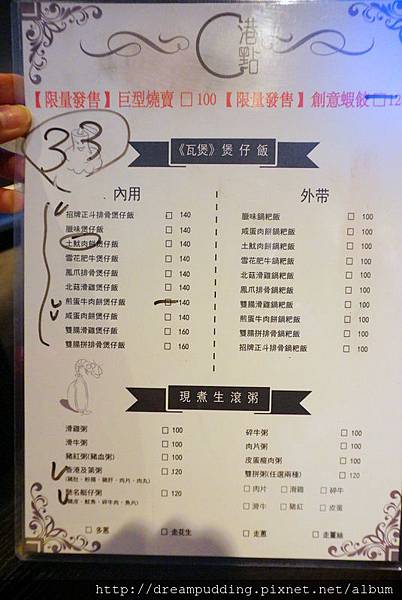 港點
【限量發售】巨型燒賣 □ 100 【限量發售】創意蝦餃 □ 12
33
《瓦煲》煲仔飯
內用
招牌正斗排骨煲仔飯 □ 140
臘味煲仔飯 □ 140
土魷肉餅煲仔飯 □ 140
雪花肥牛煲仔飯 □ 140
鳳爪排骨煲仔飯 □ 140
北菇滑雞煲仔飯 □ 140
煎蛋牛肉餅煲仔飯 □ 140
咸蛋肉餅煲仔飯 □ 140
雙腸滑雞煲仔飯 □ 160
雙腸拼排骨煲仔飯 □ 160
外帶
臘味鍋粑飯 □ 100
咸蛋肉餅鍋粑飯 □ 100
土魷肉餅鍋粑飯 □ 100
雪花肥牛鍋粑飯 □ 100
北菇滑雞鍋粑飯 □ 100
鳳爪排骨鍋粑飯 □ 100
雙腸滑雞鍋粑飯 □ 100
煎蛋牛肉餅鍋粑飯 □ 100
雙腸拼排骨鍋粑飯 □ 100
招牌正斗排骨鍋粑飯 □ 100
現煮生滾粥
滑雞粥 □ 100
滑牛粥 □ 100
豬紅粥(豬血粥) □ 100
香港及第粥 □ 120
(豬肚，粉腸，豬肝，肉片，肉丸)
馳名艇仔粥 □ 120
(豬皮，魷魚，碎牛肉，魚片)
碎牛粥 □ 100
肉片粥 □ 100
皮蛋瘦肉粥 □ 100
雙拼粥(任選兩種) □ 120
□ 肉片 □ 滑雞 □ 碎牛
□ 滑牛 □ 豬紅 □ 皮蛋
□ 多蔥 □ 走花生 □ 走蔥 □ 走薑絲
http://dreampudding.pixnet.net/album